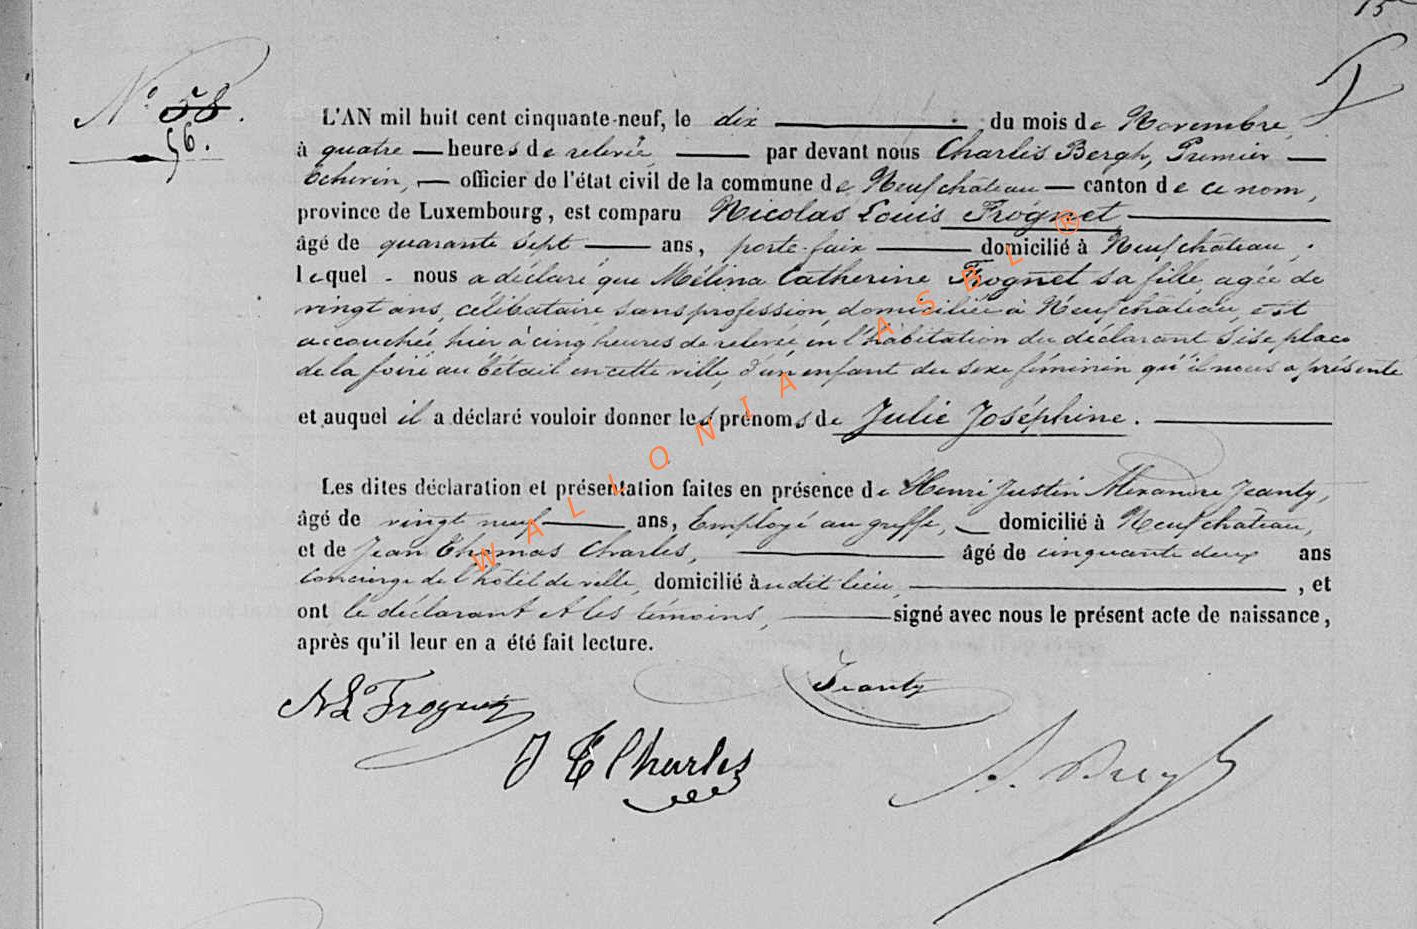 15
N° 58.
56.
L'AN mil huit cent cinquante-neuf, le dix du mois de Novembre,
à quatre heures de relevée, par devant nous Charles Bergh, Premier
Echevin, officier de l'état civil de la commune de Neufchâteau canton de ce nom,
province de Luxembourg, est comparu Nicolas Louis Frognet
âgé de quarante sept ans, porte-faix domicilié à Neufchâteau,
lequel nous a déclaré que Mélina Catherine Frognet sa fille, agée de
vingt ans, célibataire sans profession, domiciliée à Neufchâteau, est
accouchée hier à cinq heures de relevée en l'habitation du déclarant sise place
de la foire au bétail en cette ville, d'un enfant du sexe féminin qu'il nous a présenté
et auquel il a déclaré vouloir donner les prénoms de Julie Joséphine.
Les dites déclaration et présentation faites en présence de Henri Justin Alexandre Jeanty,
âgé de vingt neuf ans, Employé au greffe, domicilié à Neufchâteau,
et de Jean Thomas Charles, âgé de cinquante deux ans
concierge de l'hôtel de ville, domicilié àudit lieu, , et
ont le déclarant et les témoins, signé avec nous le présent acte de naissance,
après qu'il leur en a été fait lecture.
NL Frognet
Jeanty
J T Charles
WALLONIA ASBL ®